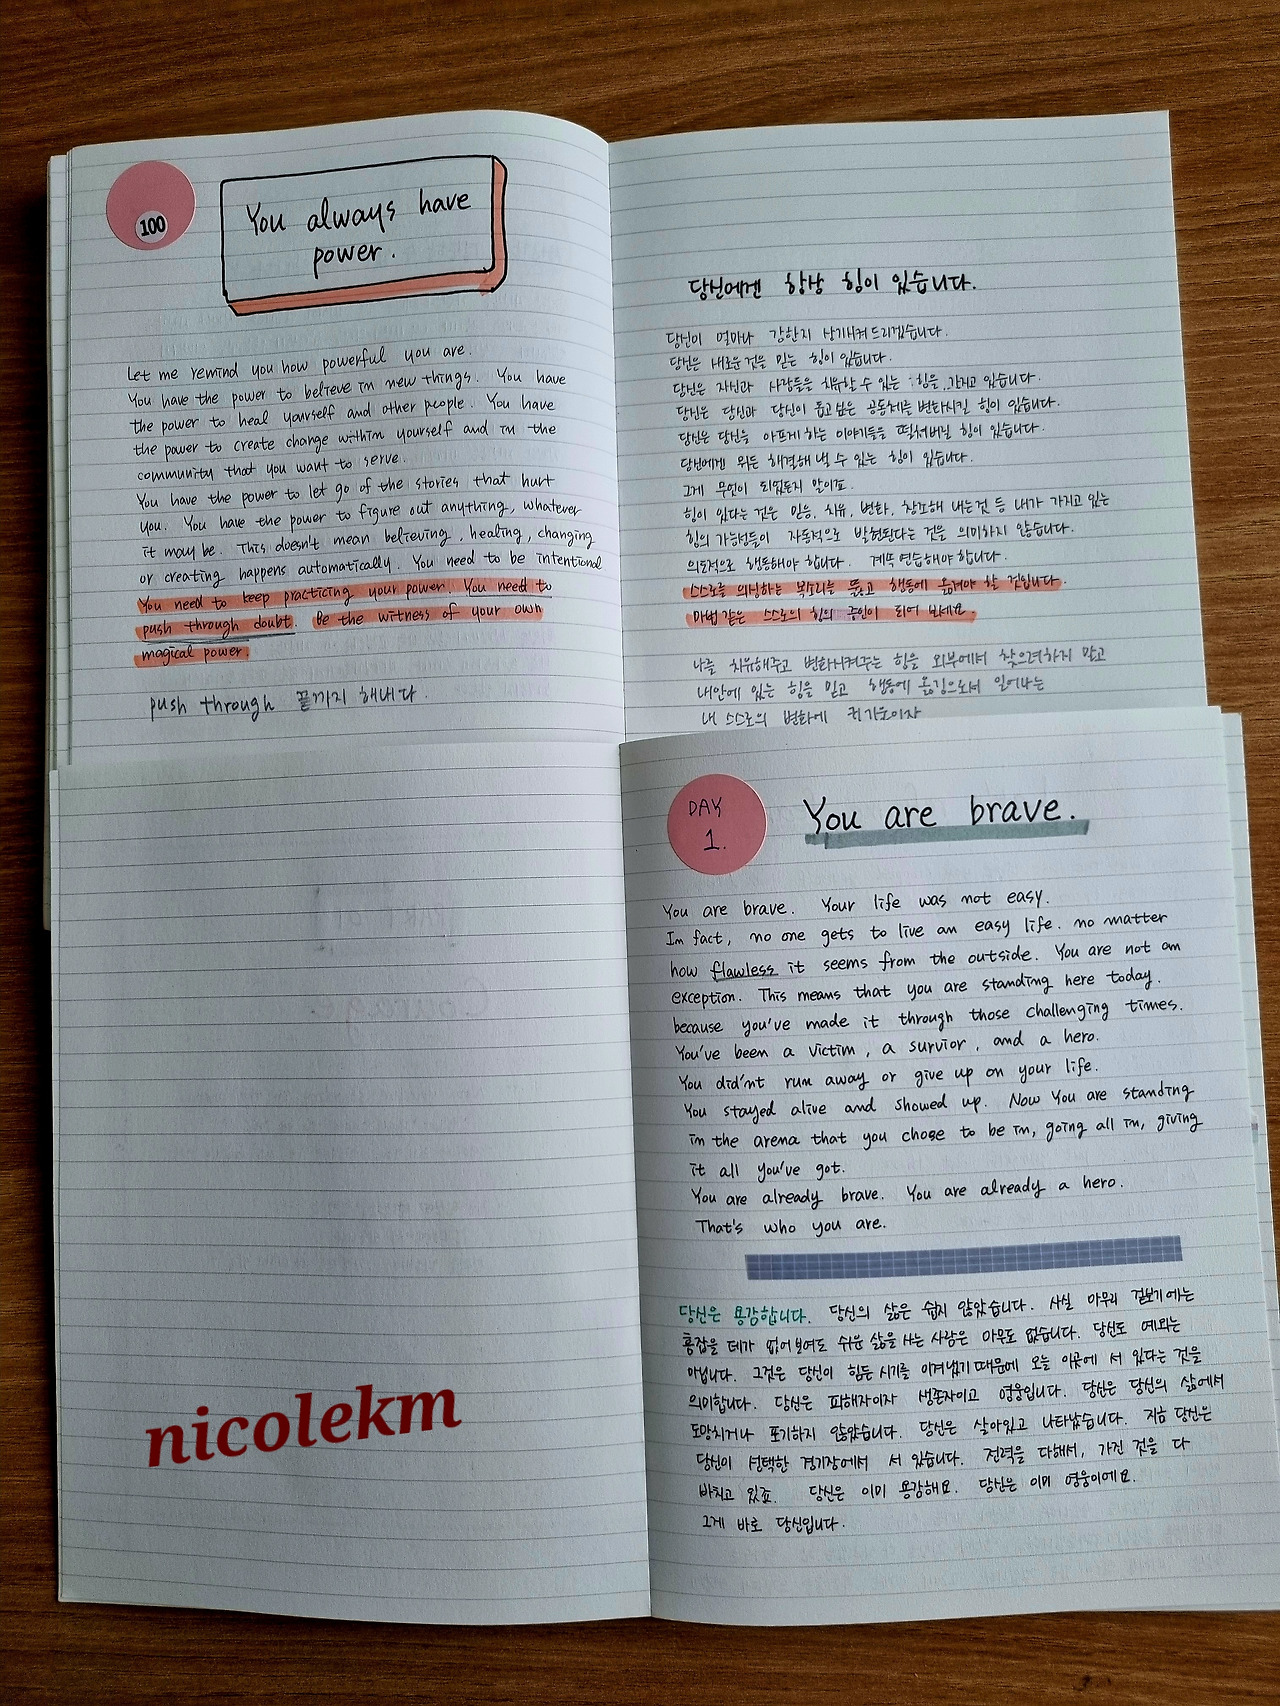 100
You always have
power.
Let me remind you how powerful you are.
You have the power to believe in new things. You have
the power to heal yourself and other people. You have
the power to create change within yourself and in the
community that you want to serve.
You have the power to let go of the stories that hurt
you. You have the power to figure out anything, whatever
it may be. This doesn't mean believing, healing, changing
or creating happens automatically. You need to be intentional
You need to keep practicing your power. You need to
push through doubt. Be the witness of your own
magical power.
push through 끝까지 해내다.
당신에겐 항상 힘이 있습니다.
당신이 얼마나 강한지 상기시켜드리겠습니다.
당신은 새로운 것을 믿는 힘이 있습니다.
당신은 자신과 사람들을 치유할 수 있는 힘을 가지고 있습니다.
당신은 당신과 당신이 돕고싶은 공동체를 변화시킬 힘이 있습니다.
당신은 당신을 아프게 하는 이야기들을 떨쳐버릴 힘이 있습니다.
당신에겐 뭐든 해결해 낼 수 있는 힘이 있습니다.
그게 무엇이 되었든지 말이죠.
힘이 있다는 것은 믿음, 치유, 변화, 창조해 내는것 등 내가 가지고 있는
힘의 가능성들이 자동적으로 발현된다는 것을 의미하지 않습니다.
의도적으로 행동해야 합니다. 계속 연습해야 합니다.
스스로를 의심하는 목소리를 뚫고 행동에 옮겨야 할 것입니다.
마법 같은 스스로의 힘의 증인이 되어 보세요.
나를 치유해주고 변화시켜주는 힘을 외부에서 찾으려하지 말고
내안에 있는 힘을 믿고 행동에 옮김으로서 일어나는
내 스스로의 변화에 귀기울이자
DAY
1.
You are brave.
You are brave. Your life was not easy.
In fact, no one gets to live an easy life. no matter
how flawless it seems from the outside. You are not an
exception. This means that you are standing here today.
because you've made it through those challenging times.
You've been a victim, a survior, and a hero.
You did'nt run away or give up on your life.
You stayed alive and showed up. Now You are standing
in the arena that you chose to be in, going all in, giving
it all you've got.
You are already brave. You are already a hero.
That's who you are.
당신은 용감합니다. 당신의 삶은 쉽지 않았습니다. 사실 아무리 겉보기에는
흠잡을 데가 없어 보여도 쉬운 삶을 사는 사람은 아무도 없습니다. 당신도 예외는
아닙니다. 그것은 당신이 힘든 시기를 이겨냈기 때문에 오늘 이곳에 서 있다는 것을
의미합니다. 당신은 피해자이자 생존자이고 영웅입니다. 당신은 당신의 삶에서
도망치거나 포기하지 않았습니다. 당신은 살아있고 나타났습니다. 지금 당신은
당신이 선택한 경기장에서 서 있습니다. 전력을 다해서, 가진 것을 다
바치고 있죠. 당신은 이미 용감해요. 당신은 이미 영웅이에요.
그게 바로 당신입니다.
nicolekm